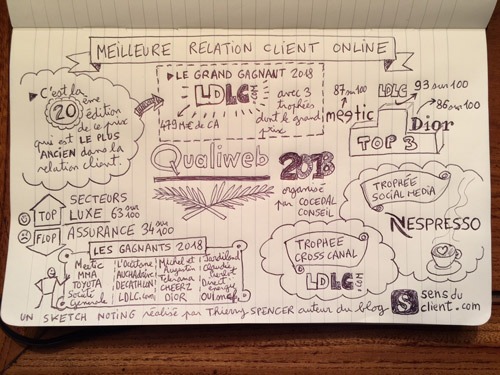 MEILLEURE RELATION CLIENT ONLINE
C'est la
20 ème
édition
de ce prix
qui est LE PLUS
ANCIEN dans la
relation client.
LE GRAND GAGNANT 2018
LDLC.com
avec 3
trophées
dont le grand
prix
479 M€ de CA
87 sur 100
meetic
LDLC
93 sur 100
86 sur 100
Dior
TOP 3
Qualiweb 2018
organisé
par COCEDAL
CONSEIL
TOP
SECTEURS
LUXE 63 sur 100
FLOP
ASSURANCE 34 sur 100
TROPHÉE
SOCIAL MEDIA
NESPRESSO
TROPHEE
CROSS CANAL
LDLC.com
LES GAGNANTS 2018
Meetic
MMA
TOYOTA
Société
Generale
L'Occitane
AUCHAN
DECATHLON
LDLC.com
Michel et
Augustin
CHEERZ
DIOR
Jardiland
Claudie
Pierlot
Direct
energie
UN SKETCH NOTING réalisé par Thierry SPENCER auteur du blog
S sens du
client.com